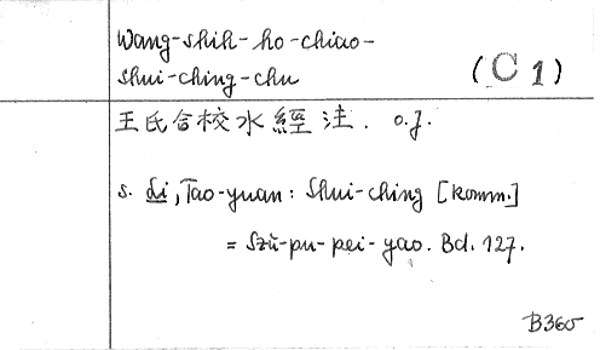 Wang-shih-ho-chiao-
shui-ching-chu
(C 1)
王氏合校水經注. o.J.
s. Li, Tao-yuan: Shui-ching [Komm.]
= Szŭ-pu-pei-yao. Bd. 127.
B360